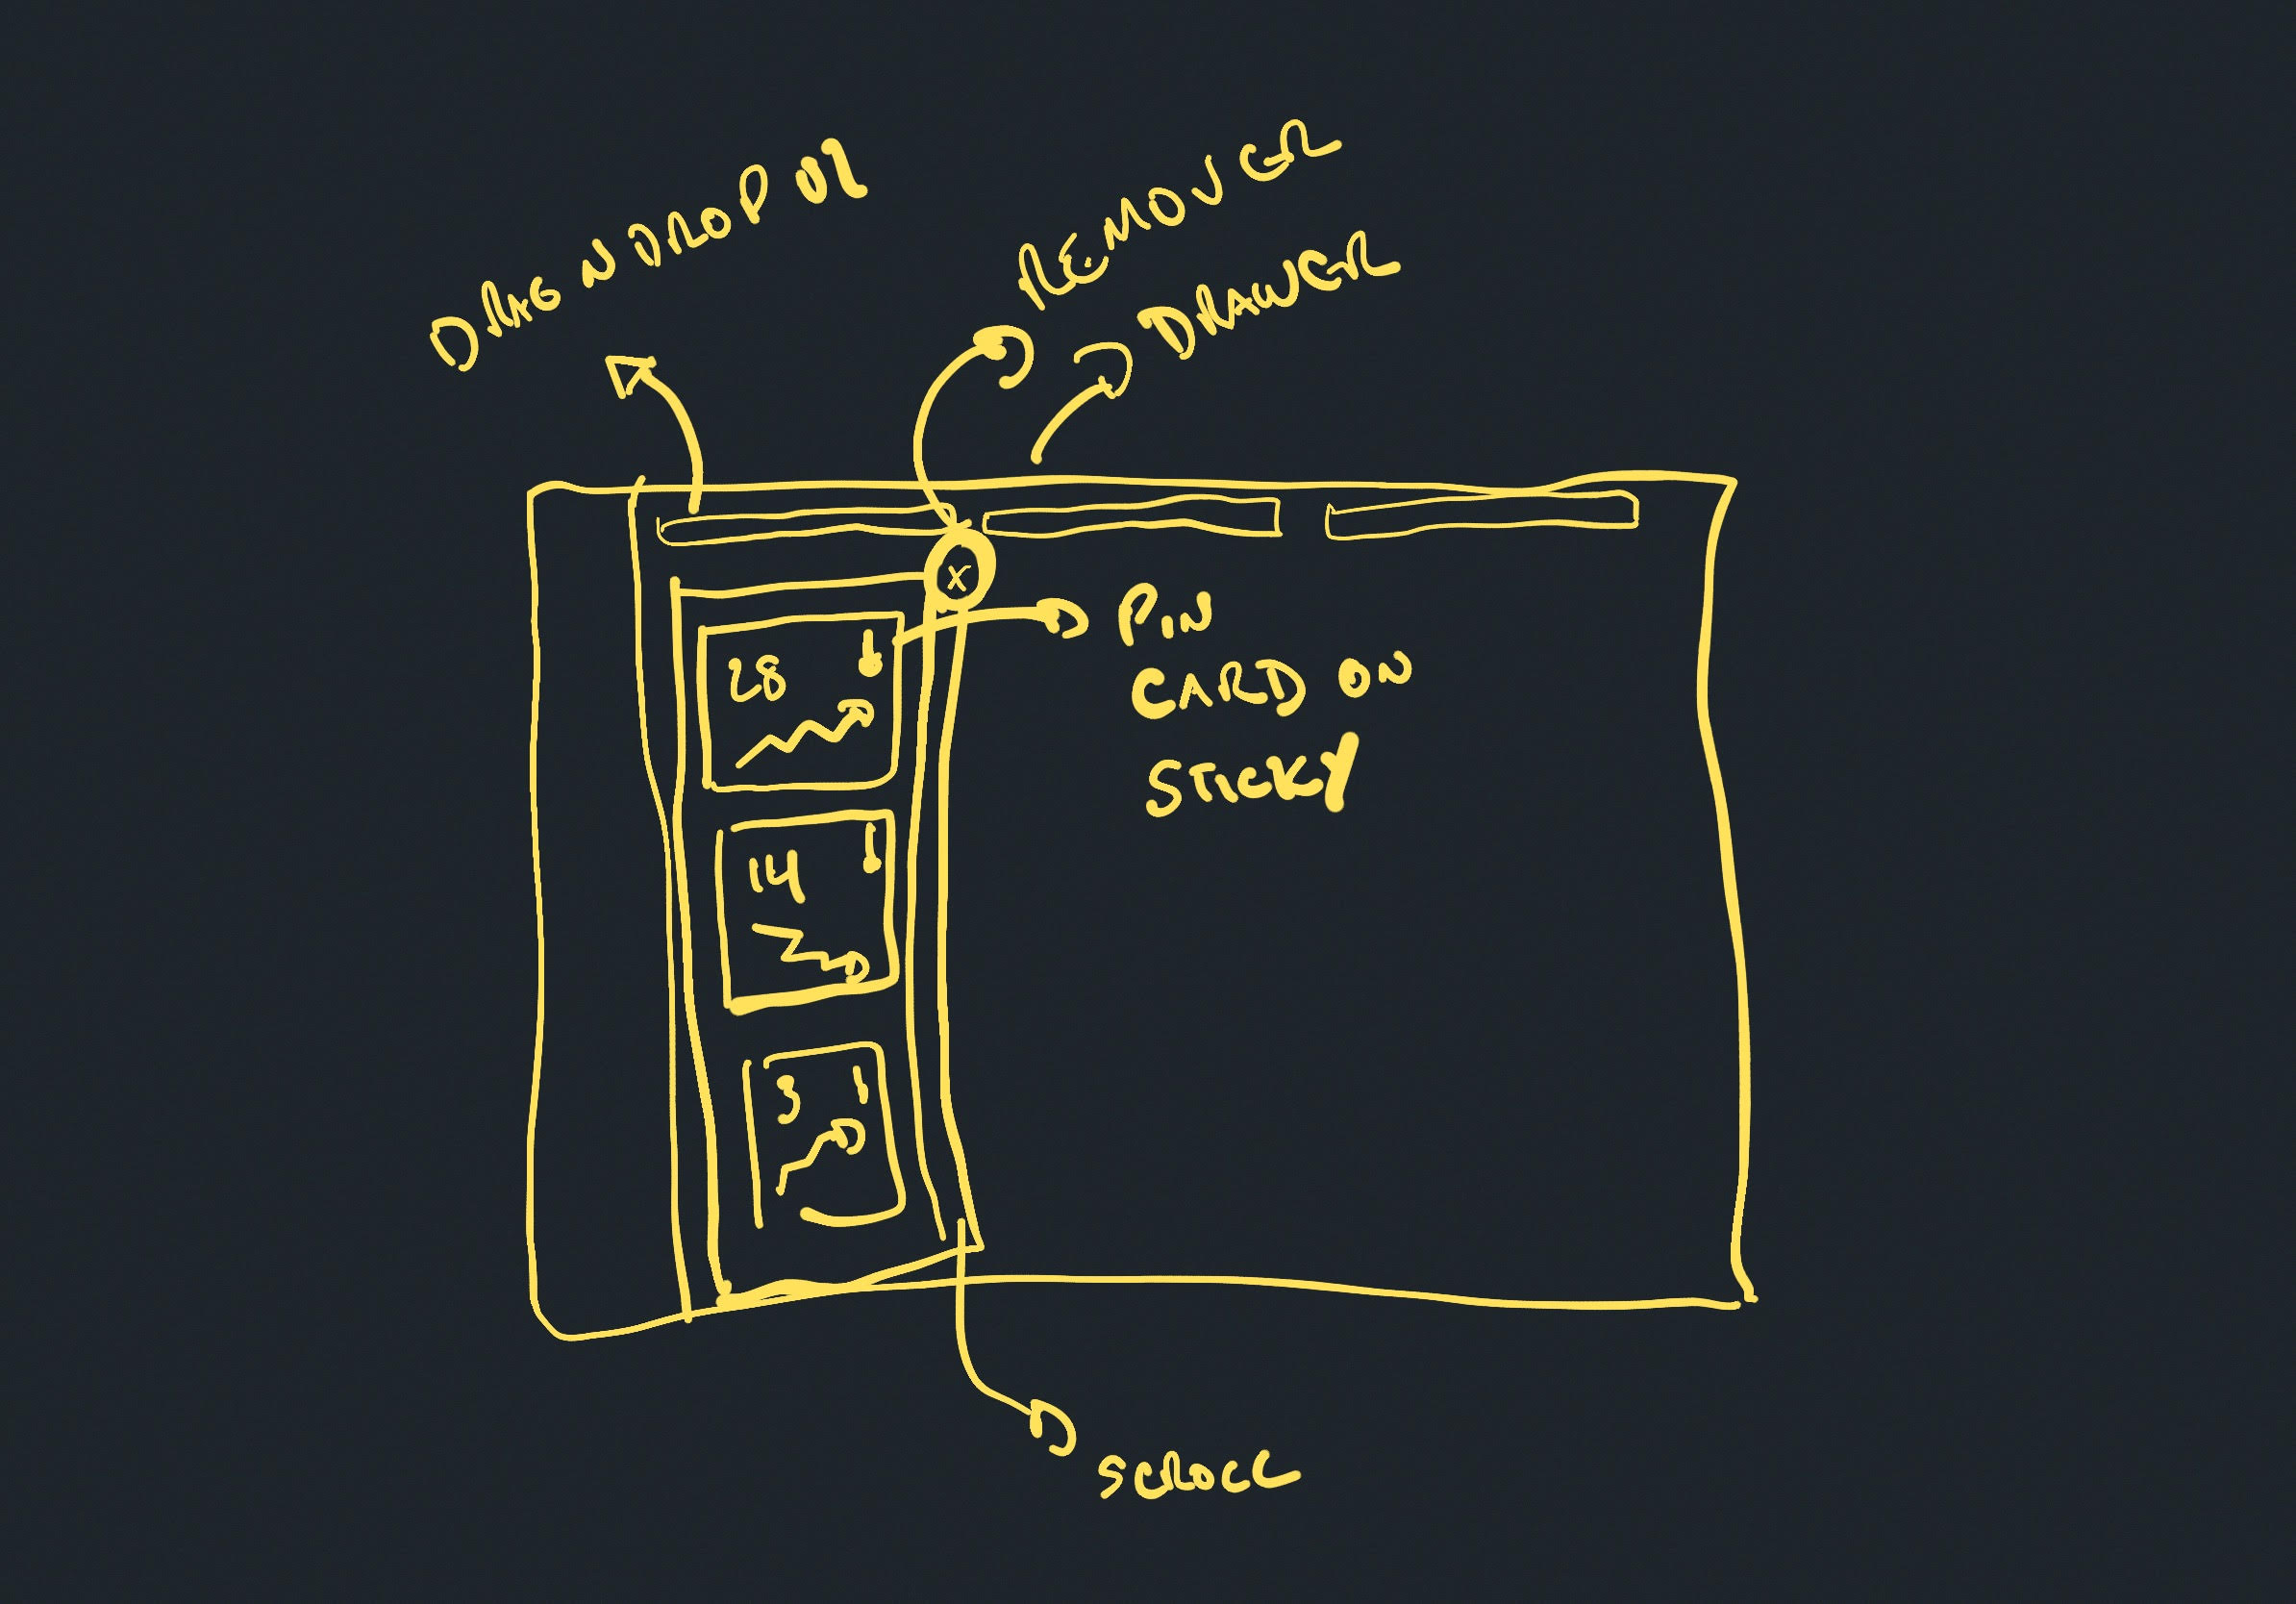 DRAG N DROP
REMOVER
DRAWER
X
PIN
CARD ON
STICKY
28
14
3
SCROLL